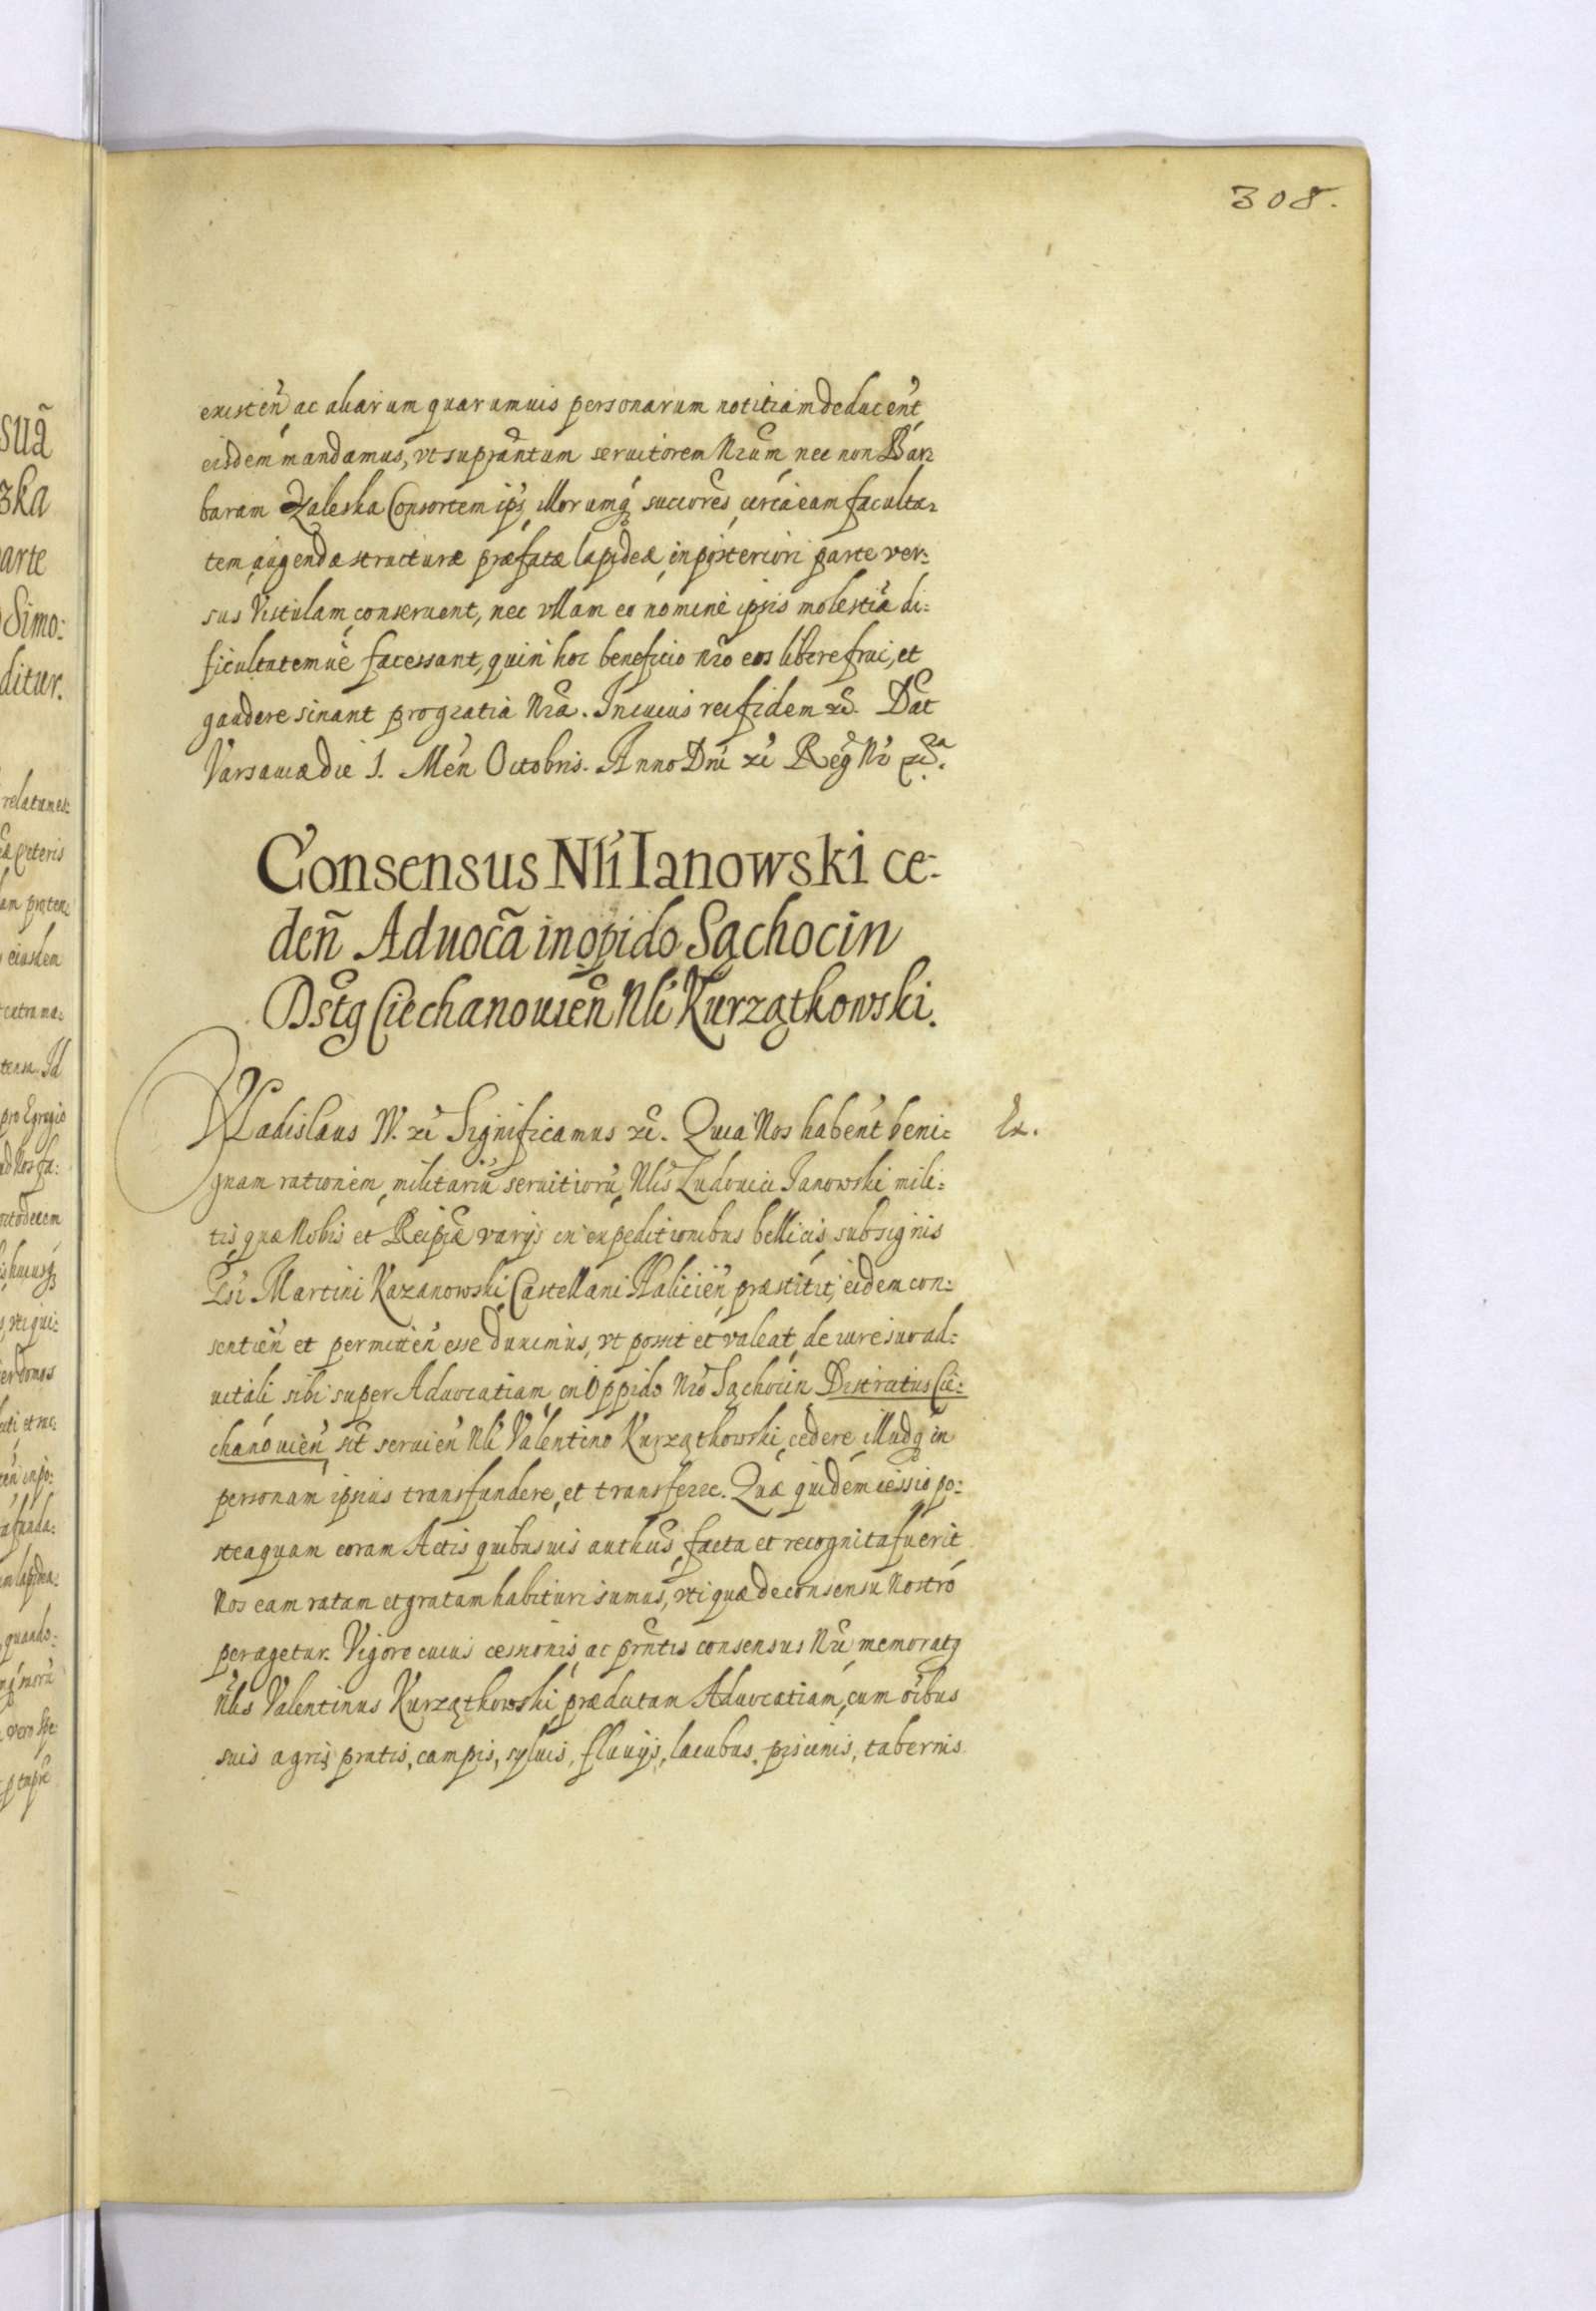 308.
existeñ, ac aliarum quarumuis personarum notitiam deducent,
eisdem mandamus, vt supraňtum seruitorem Nr̃um nec non Bar=
baram Zaleska Consortem ips, illorumq́ succores, circa eam faculta=
tem augendæ structuræ præfatæ lapideæ, in posteriori parte ver=
sus Vistulam, conseruent, nec vllam eo nomine ipsis molestiã di=
ficultatemuè facessant, quin hoc beneficio nr̃o eos libere frui, et
gaudere sinant pro gratia Nr̃a. In cuius rei fidem &c̃. Dat
Varsauiæ die 1. Meñ Octobris. Anno Dni &c̃ Reg̃ Nr̃ &c̃ra.
Consensus Nli Ianowski ce=
deñ Aduocã in opido Sąchocin
Dstg Ciechanouieñ Nli Kurzątkowski.
VLadislaus IV. &c̃ Significamus &c̃. Quia Nos habent beni=
Ex.
gnam rationem, militariũ seruitiorũ, Nlis Ludouici Ianowski mili=
tis quæ Nobis et Reipcæ varijs in expeditionibus bellicis sub signis
Gsi Martini Kazanowski, Castellani Halicieñ præstitit, eidem con=
sentieñ et permitteñ esse duximus, vt possit et valeat, de iure suo ad=
uitali sibi super Aduocatiam in Oppido Nr̃o Sąchocin Districtus Cie=
chanouieñ, sit seruieñ Nli Valentino Kurzątkowski, cedere, illudq́ in
personam ipsius transfundere, et transferre. Quæ quidem cessio po=
steaquam coram Actis quibusuis authcis, facta et recognita fuerit
Nos eam ratam et gratam habituri sumus, vti quæ de consensu Nostro
peragetur. Vigore cuius cessionis, ac prñtis consensus Nr̃i memoratg
Nlis Valentinus Kurzątkowski, prædictam Aduocatiam, cum oĩbus
suis agris, pratis, campis, syluis, fluuijs, lacubus, piscinis, tabernis